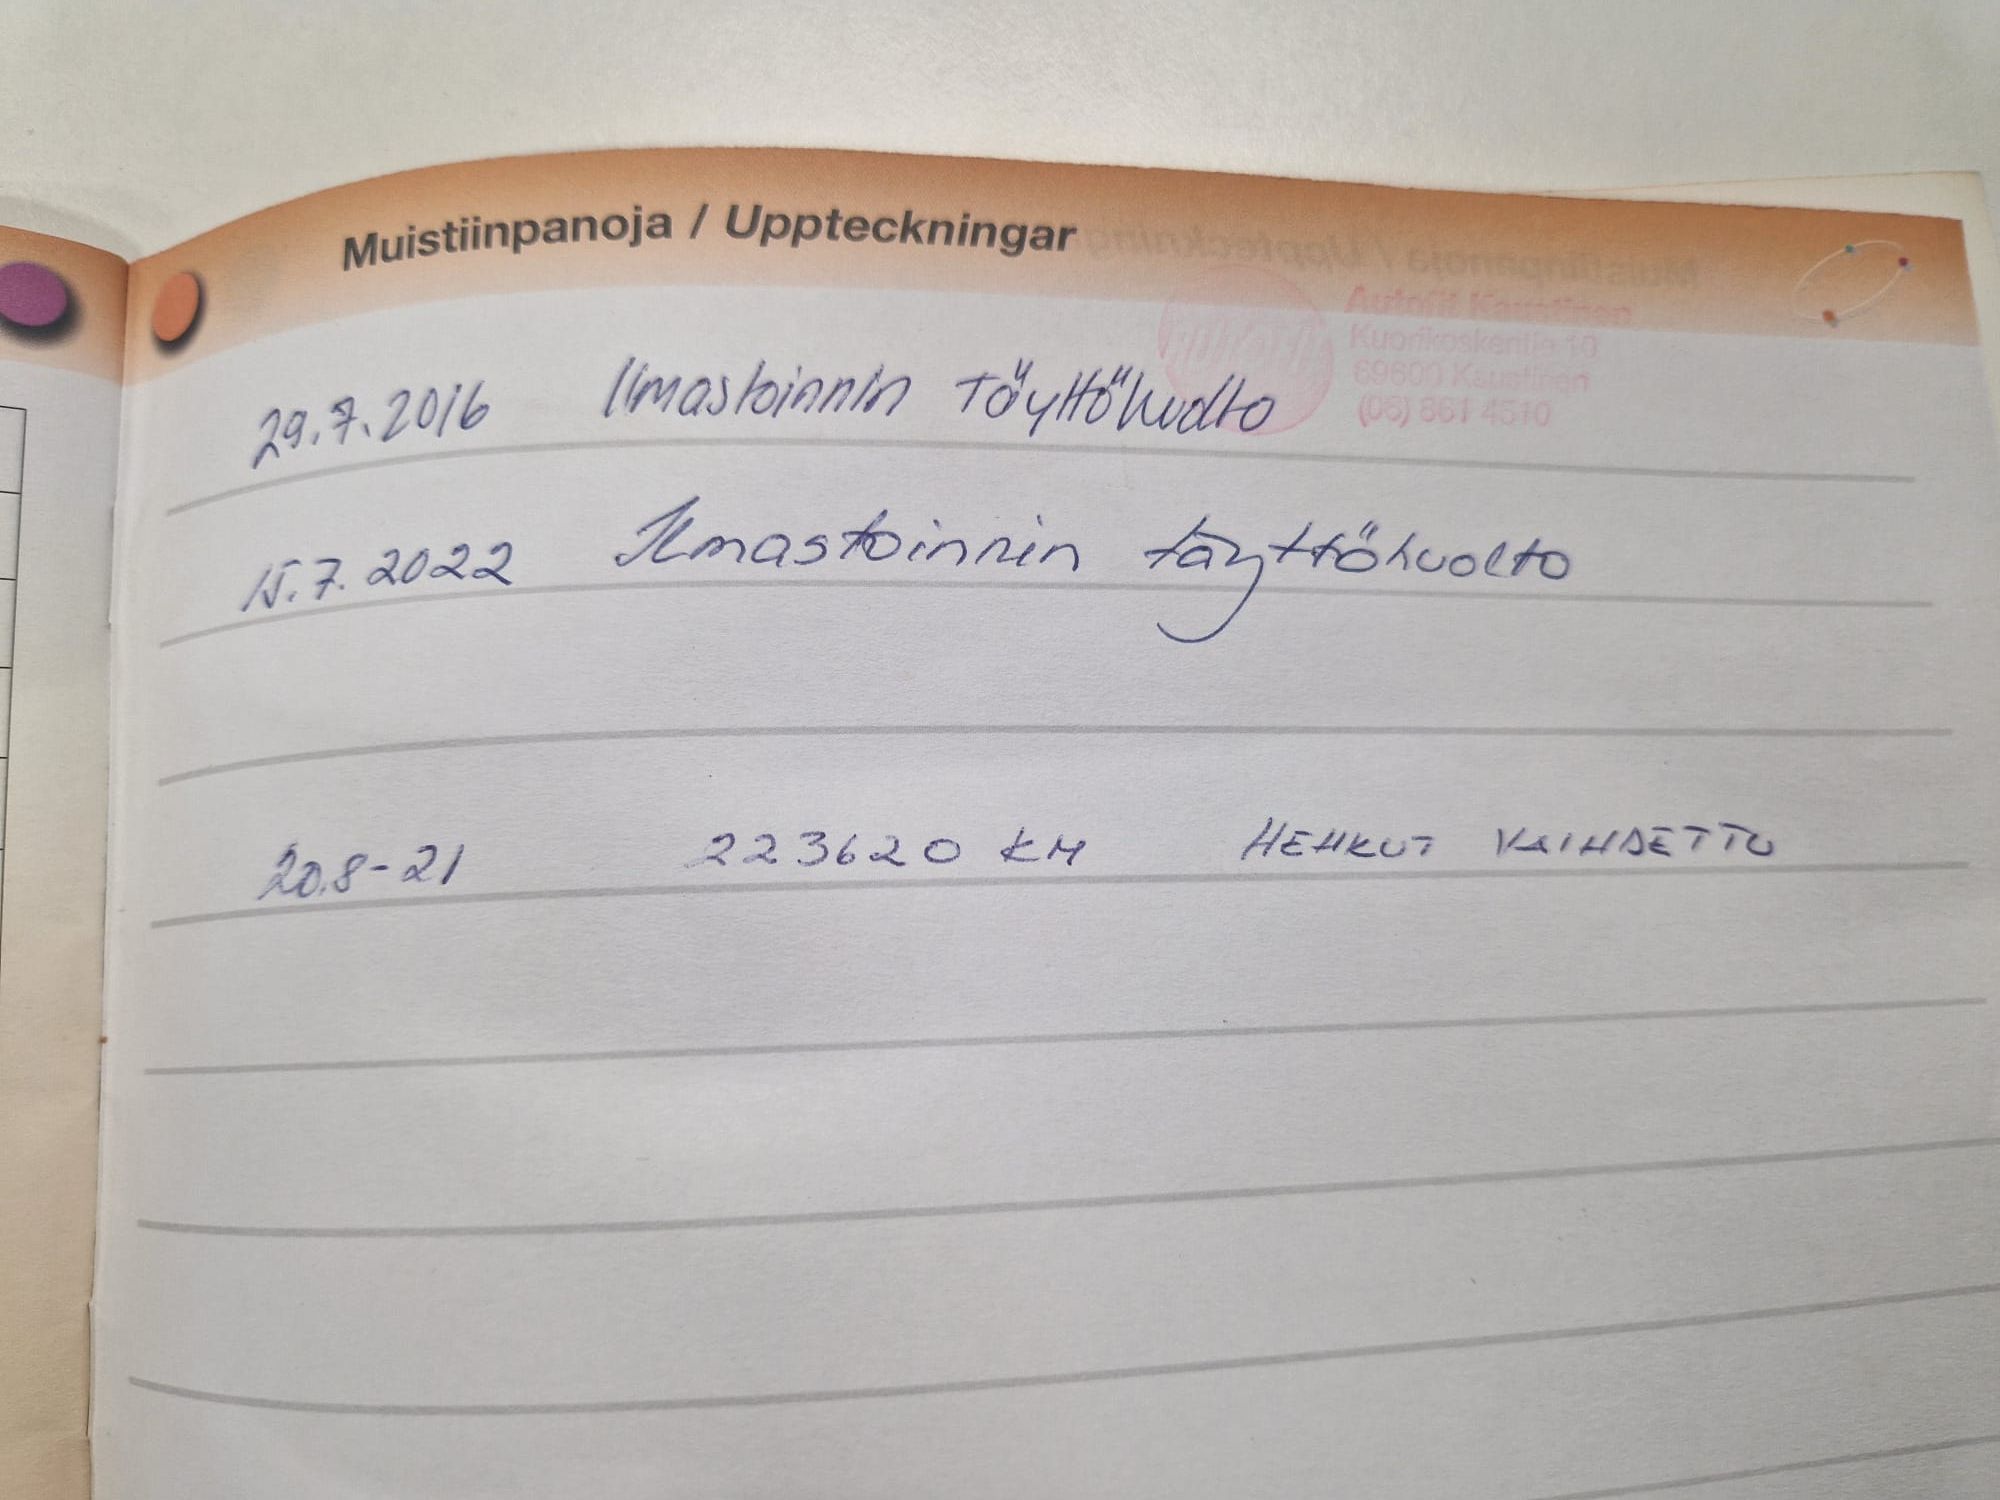 Muistiinpanoja / Uppteckningar
Autofit Kaustinen
Kuorikoskentie 10
69600 Kaustinen
(06) 861 4510
29.7.2016 Ilmastoinnin Täyttöhuolto
15.7.2022 Ilmastoinnin täyttöhuolto
20.8-21 223620 KM HEHKUT VAIHDETTU